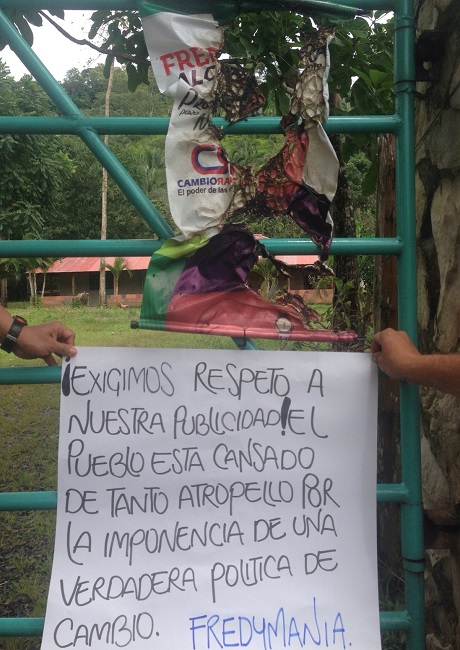 FRE
ALC
CR
CAMBIORA
El poder de las
¡EXIGIMOS RESPETO A
NUESTRA PUBLICIDAD! EL
PUEBLO ESTA CANSADO
DE TANTO ATROPELLO POR
LA IMPONENCIA DE UNA
VERDADERA POLITICA DE
CAMBIO. FREDYMANIA.